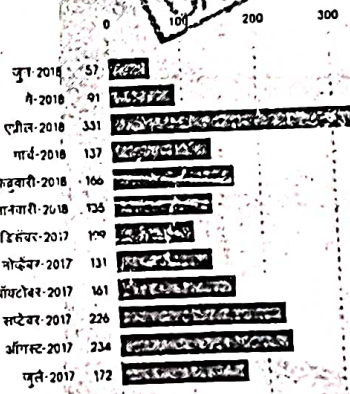 0 100 200 300
जून-2018 57
मे-2018 91
एप्रील-2018 331
मार्च-2018 137
फेब्रुवारी-2018 166
जानेवारी-2018 135
डिसेंबर-2017
नोव्हेंबर-2017 131
ऑक्टोबर-2017 161
सप्टेंबर-2017 226
ऑगस्ट-2017 234
जुलै-2017 172